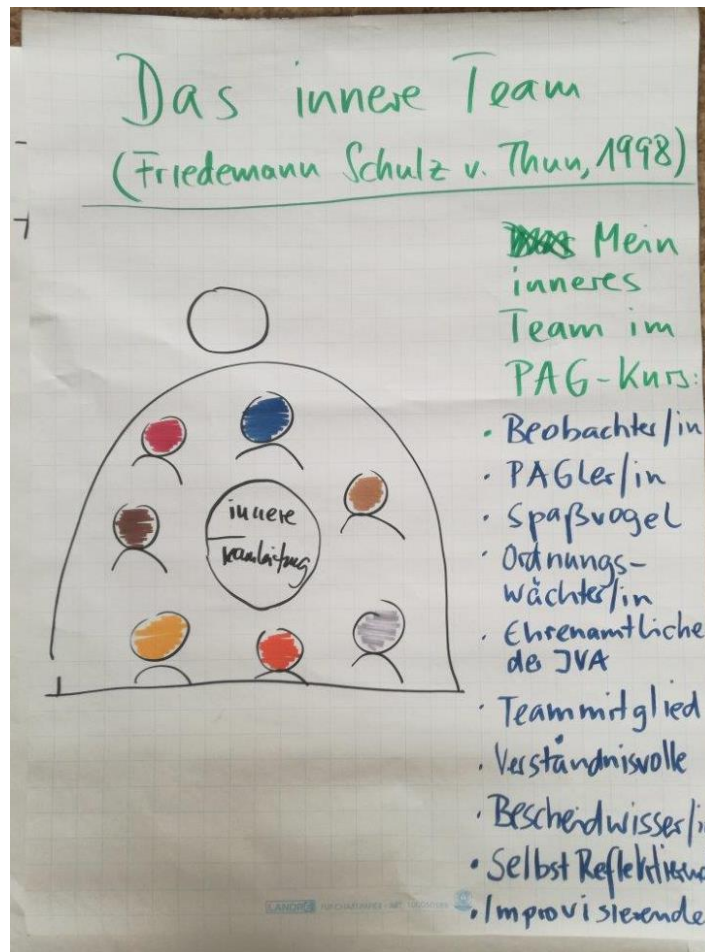 Das innere Team
(Friedemann Schulz v. Thun, 1998)
Mein
inneres
Team im
PAG-Kurs:
• Beobachter/in
• PAGler/in
• Spaßvogel
• Ordnungs-
wächter/in
• Ehrenamtliche
der JVA
• Teammitglied
• Verständnisvolle
• Bescheidwisser/i
• Selbst Reflektierend
• Improvisierende
innere
Teamleitung
LANDRÉ